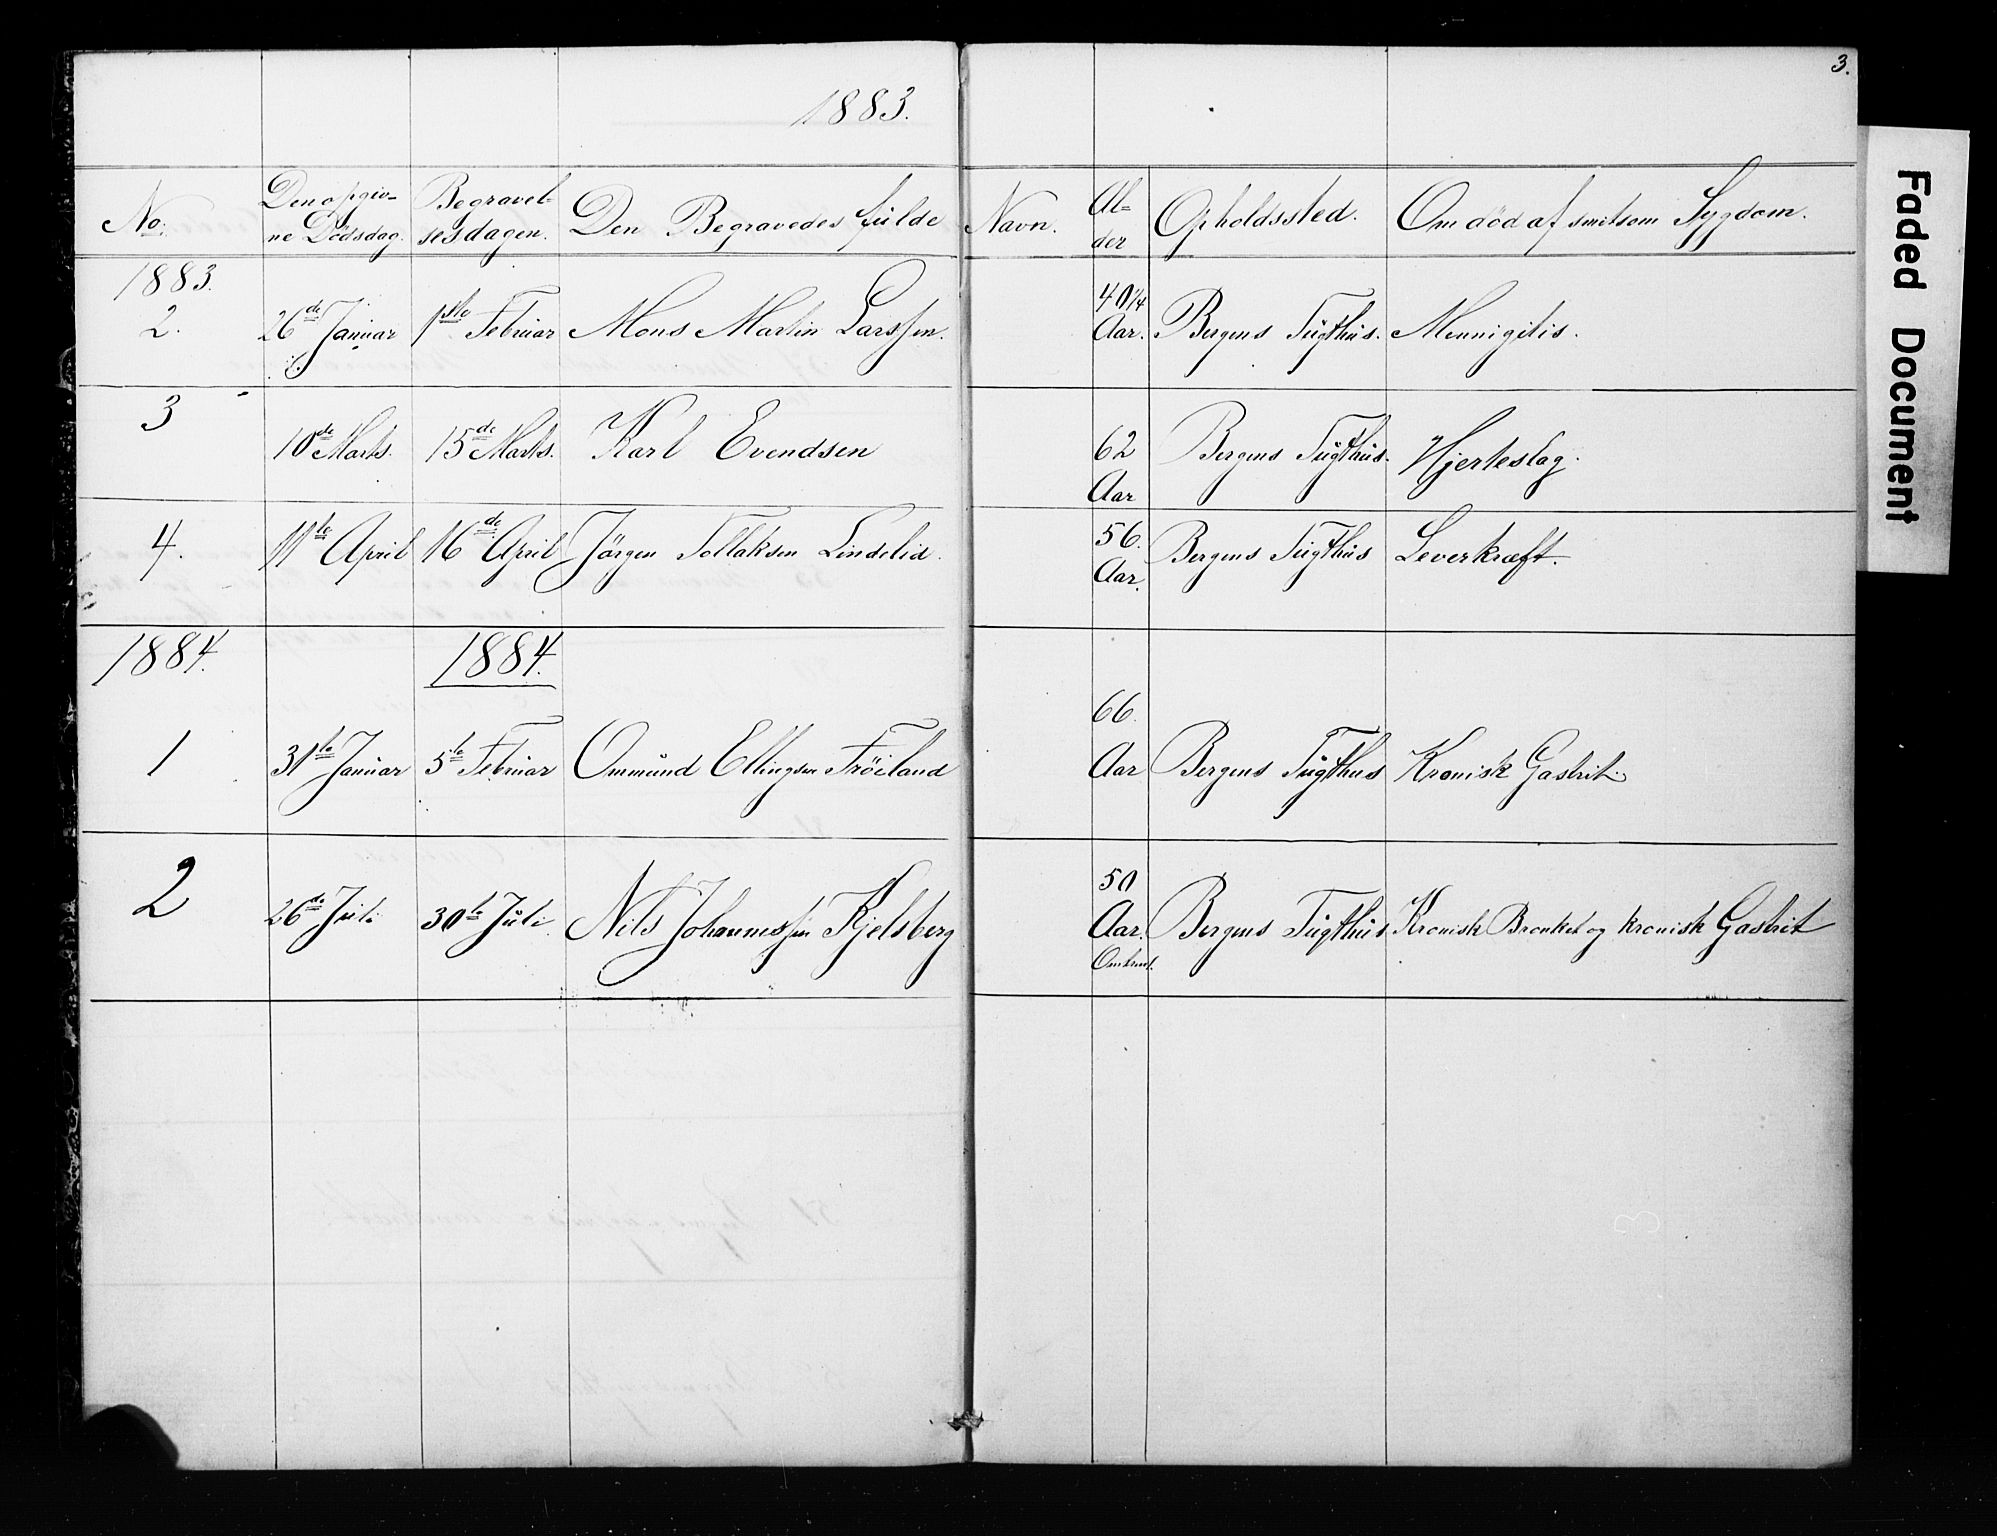 3.
1883.
No. Den opgiv- Begravel- Den Begravedes fulde Navn. Al- Opholdssted. Om död af smitsom Sygdom.
ne Dödsdag. sesdagen. der
1883.
2. 26de Januar 1ste Februar Mons Martin Larssen. 40 1/4 Aar. Bergens Tugthus. Mennigitis.
3 10de Marts. 15de Marts. Karl Evendsen 62 Aar Bergens Tugthus. Hjerteslag.
4. 11te April 16de April Jörgen Tollaksen Lindelid. 56. Aar. Bergens Tugthus Leverkræft.
1884. 1884.
1 31te Januar 5te Februar Ommund Ellingsen Fröiland 66. Aar Bergens Tugthus Kronisk Gastrit.
2 26de Juli 30te Juli Nils Johannessen Kjelsberg 50 Aar. Omtrent. Bergens Tugthus Kronisk Bronket og kronisk Gastrit
Faded Document